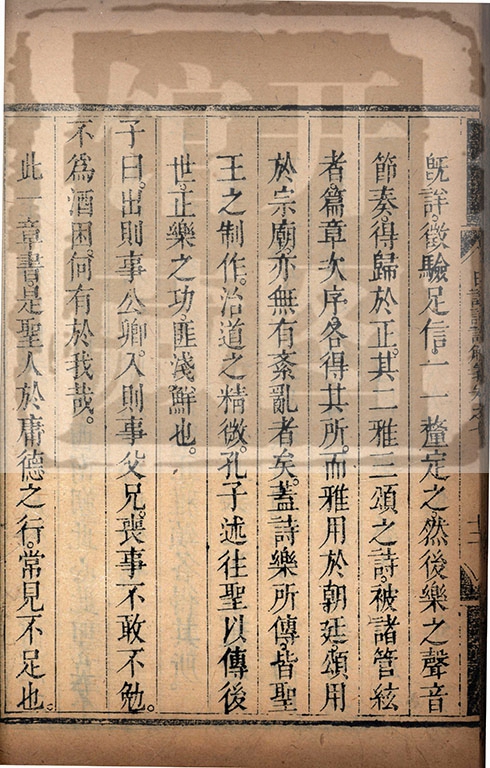 既詳。徵驗足信。一一釐定之。然後樂之聲音
節奏。得歸於正。其二雅三頌之詩。被諸管絃
者。篇章次序。各得其所。而雅用於朝廷。頌用
於宗廟。亦無有紊亂者矣。蓋詩樂所傳。皆聖
王之制作。治道之精微。孔子述往聖以傳後
世。正樂之功。匪淺鮮也。
子曰。出則事公卿。入則事父兄。喪事不敢不勉。
不爲酒困。何有於我哉。
此一章書。是聖人於庸德之行。常見不足也。